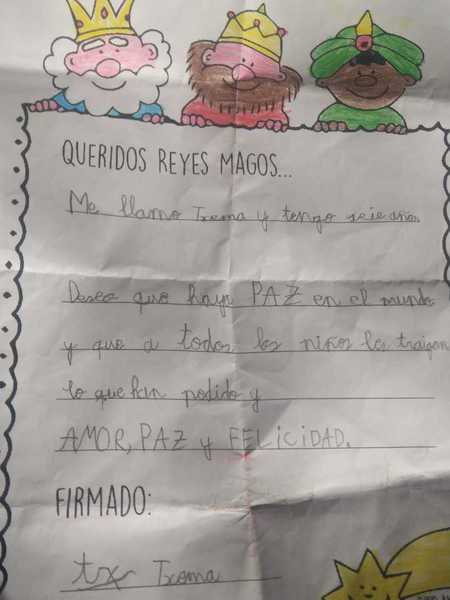 QUERIDOS REYES MAGOS...
Me llamo Txema y tengo seis años.
Deseo que haya PAZ en el mundo
y que a todos los niños les traigan
lo que han pedido y
AMOR, PAZ y FELICIDAD.
FIRMADO:
tx Txema